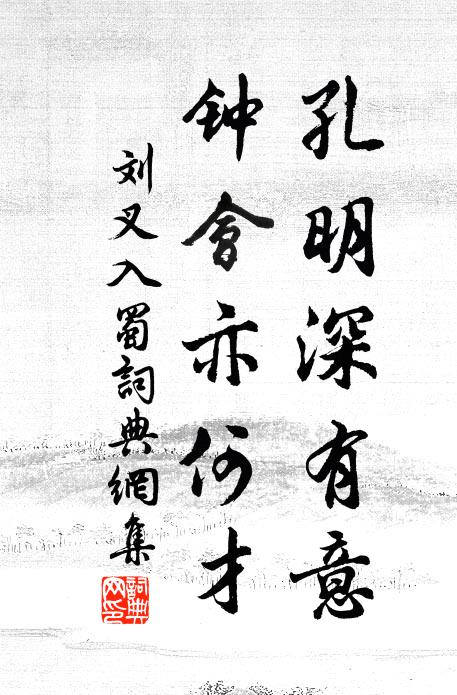 孔明深有意
钟會亦何才
刘叉入蜀詞典網集
詞典
网印